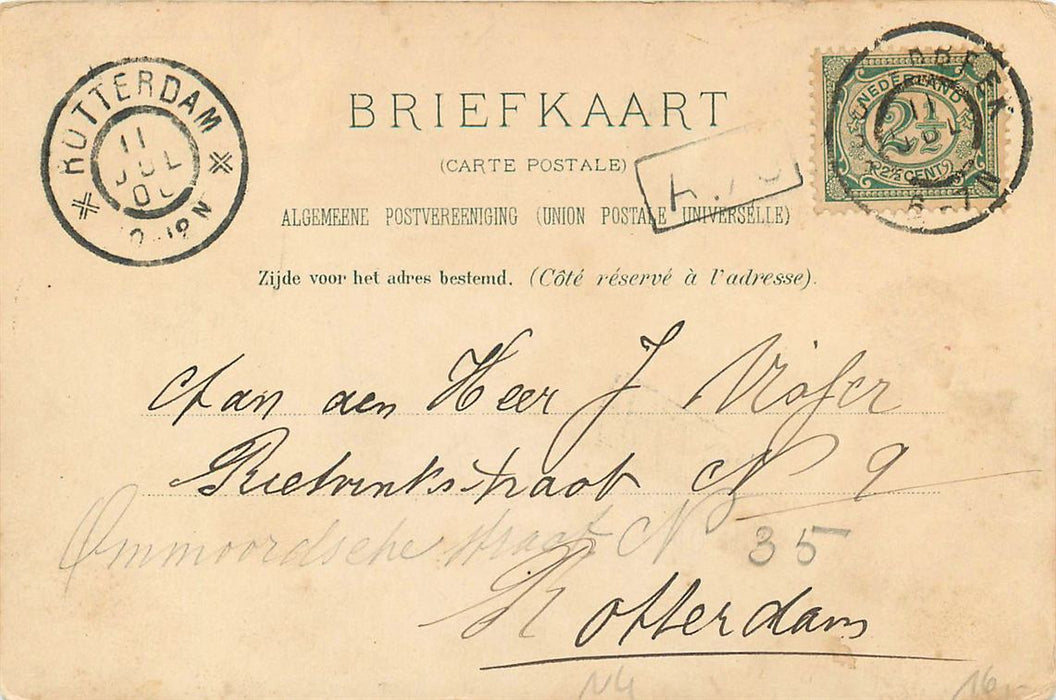 ROTTERDAM
11
JUL
BRIEFKAART
(CARTE POSTALE)
ALGEMEENE POSTVEREENIGING (UNION POSTALE UNIVERSELLE)
Zijde voor het adres bestemd. (Côté réservé à l'adresse).
NEDERLAND
2½
2½ CENT
11
5-7N
Aan den Heer J Visser
Rietvinkstraat N 9
Ommoordsche straat N 35
Rotterdam